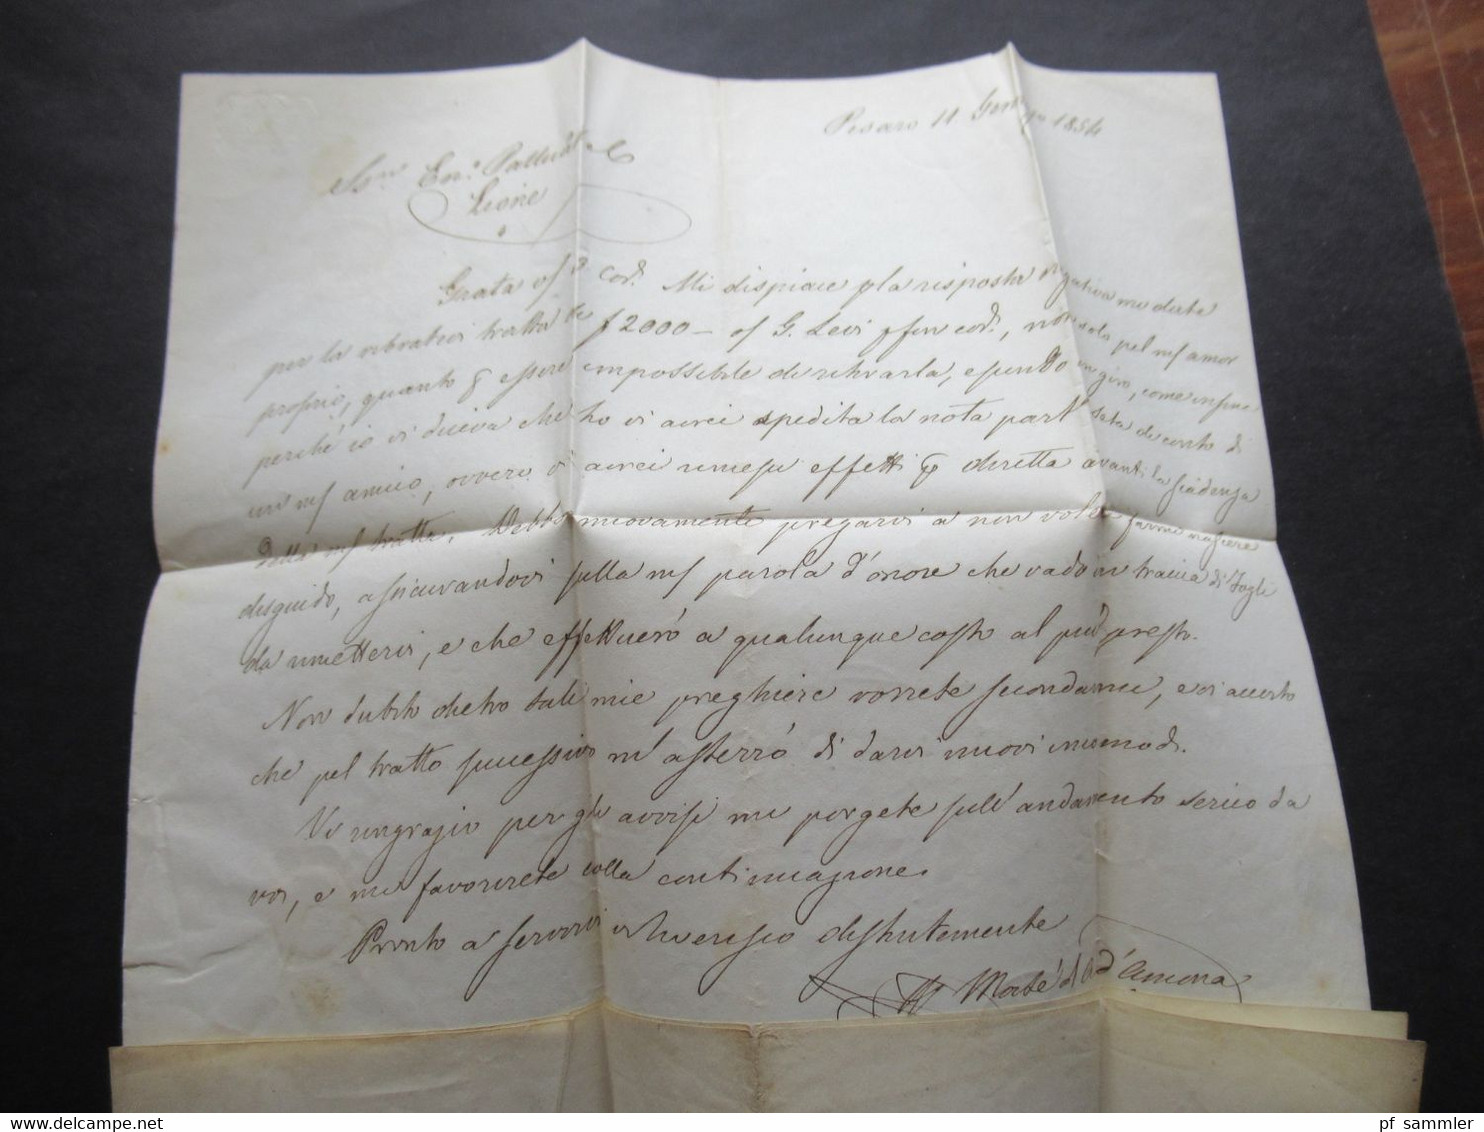 Pesaro 11 1854
Leone
Grata Mi dispiace la risposta negativa mi date
per la tratta f 2000 – G. Levi cord., non solo pel amor
proprio, quanto p essere impossibile di ritirarla, essendo in giro, come infine
perché io vi diceva che ho vi avrei spedita la nota di conto di
un amico, ovvero vi avrei rimessi effetti p diretta avanti la scadenza
della tratta. Debbo nuovamente pregarvi a non voler farmi nascere
disguido, assicurandovi sulla parola d'onore che vado in traccia di Fogli
da rimettervi, e che effettuerò a qualunque costo al più presto.
Non dubito dietro tali mie preghiere vorrete secondarmi, e vi accerto
che pel tratto successivo m'asterrò di darvi nuovi incomodi.
Vi ringrazio per gli avvisi mi porgete sull'andamento serico da
voi, e mi favorirete colla continuazione.
Pronto a servirvi vi riverisco distintamente
d'Ancona
pf sammler